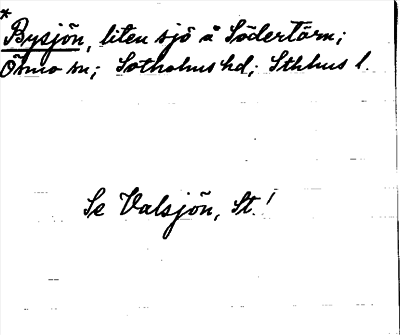 *
Bysjön, liten sjö å Södertörn;
Ösmo sn; Sotholms hd; Sthlms l.
Se Valsjön, St.!